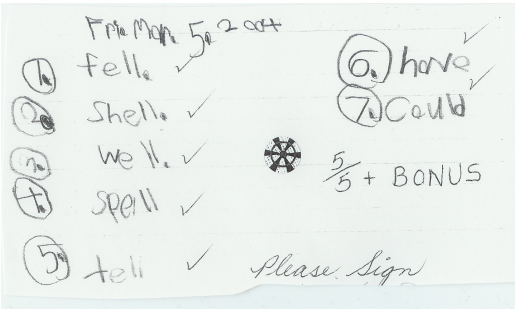 Fri. Mar. 5, 2004
1. fell.
2. Shell.
3. well.
4. spell
5. tell
6. have
7. Could
5/5 + BONUS
Please Sign